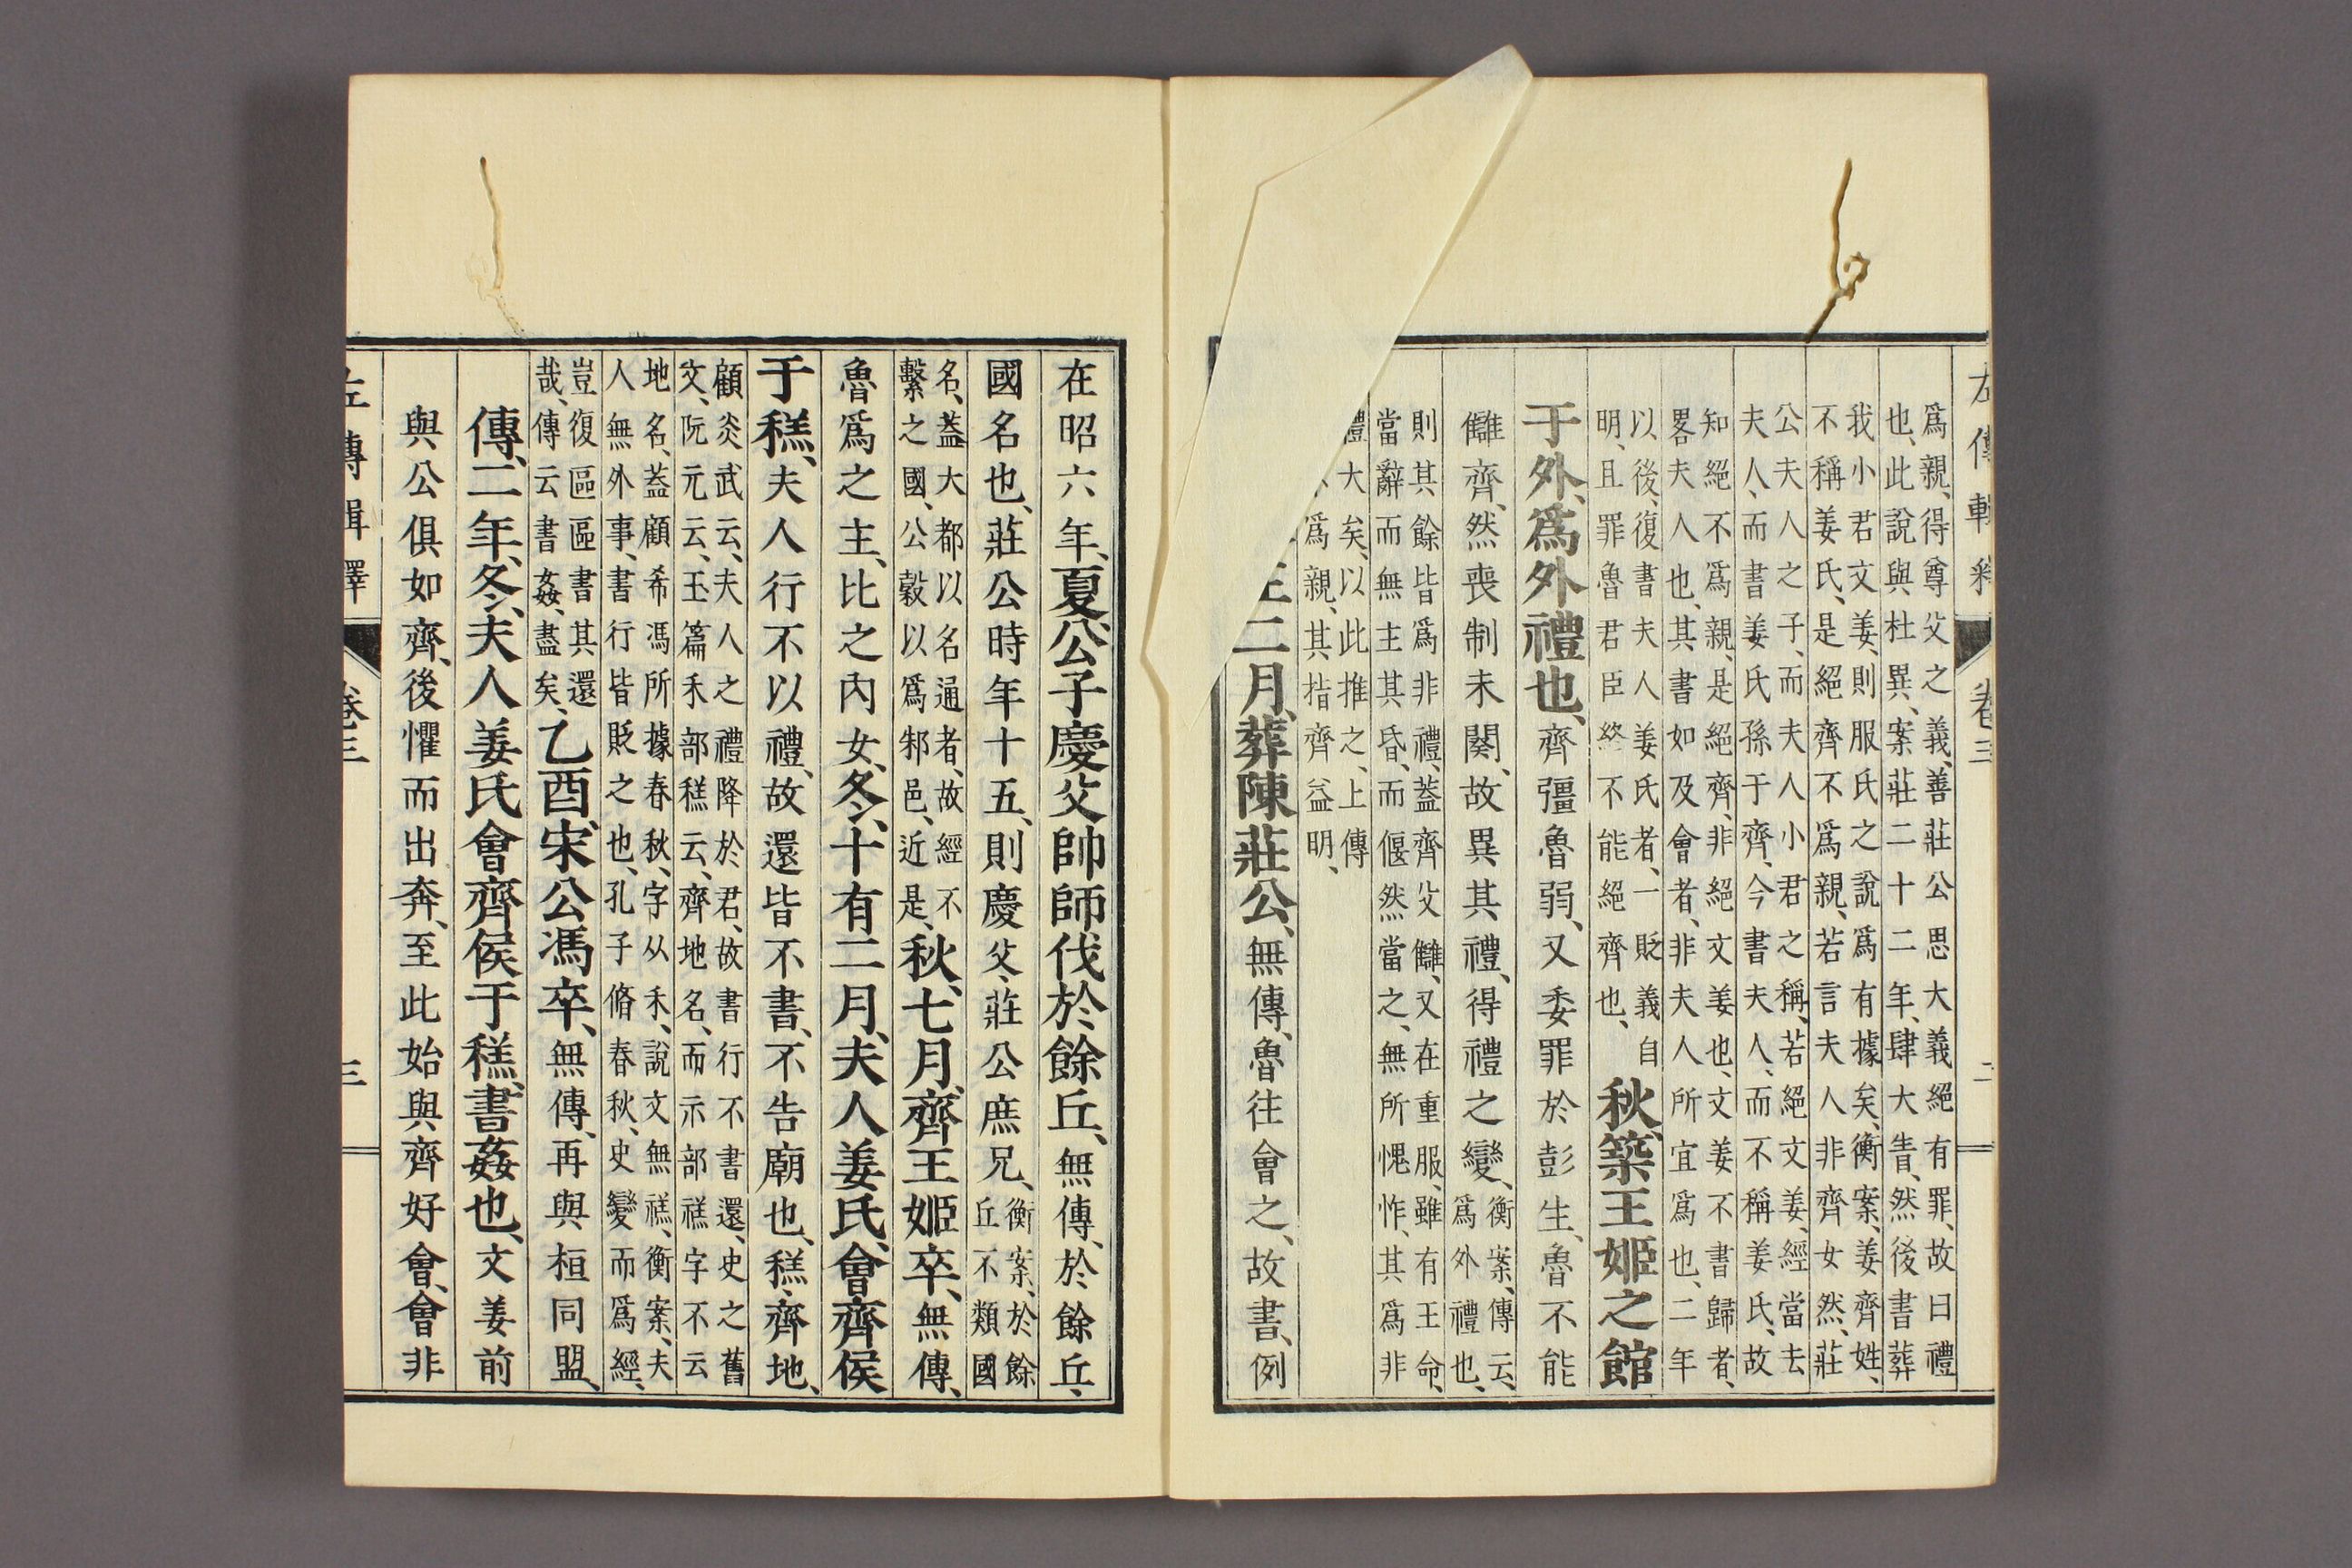 左傳輯 卷三 二
爲親、得尊父之義、善莊公思大義絕有罪、故曰禮
也、此說與杜異、案莊二十二年、肆大眚、然後書葬
我小君文姜、則服氏之說爲有據矣、衡案、姜齊姓、
不稱姜氏、是絕齊不爲親、若言夫人非齊女然、莊
公夫人之子、而夫人小君之稱、若絕文姜、經當去
夫人、而書姜氏孫于齊、今書夫人、而不稱姜氏、故
知絕不爲親、是絕齊、非絕文姜也、文姜不書歸者、
畧夫人也、其書如及會者、非夫人所宜爲也、二年
以後、復書夫人姜氏者、一貶義自
明、且罪魯君臣終不能絕齊也、
秋、築王姬之館
于外、爲外禮也、齊彊魯弱、又委罪於彭生、魯不能
讎齊、然喪制未闋、故異其禮、得禮之變、
衡案、傳云、
爲外禮也、
則其餘皆爲非禮、蓋齊父讎、又在重服、雖有王命、
當辭而無主其昏、而偃然當之、無所愧怍、其爲非
禮大矣、以此推之、上傳
爲親、其指齊益明、
王二月、葬陳莊公、無傳、魯往會之、故書、例
在昭六年、夏、公子慶父帥師伐於餘丘、無傳、於餘丘、
國名也、莊公時年十五、則慶父、莊公庶兄、
衡案、於餘
丘不類國
名、蓋大都以名通者、故經不
繫之國、公穀以爲邾邑、近是、
秋、七月、齊王姬卒、無傳、
魯爲之主、比之內女、冬、十有二月、夫人姜氏、會齊侯
于禚、夫人行不以禮、故還皆不書、不告廟也、禚、齊地、
顧炎武云、夫人之禮降於君、故書行不書還、史之舊
文、阮元云、玉篇禾部䅵云、齊地名、而示部禚字不云
地名、蓋顧希馮所據春秋、字从禾、說文無禚、衡案、夫
人無外事、書行皆貶之也、孔子脩春秋、史變而爲經、
豈復區區書其還
哉、傳云書姦、盡矣、
乙酉、宋公馮卒、無傳、再與桓同盟、
傳、二年、冬、夫人姜氏會齊侯于禚、書姦也、文姜前
與公俱如齊、後懼而出奔、至此始與齊好會、會非
左傳輯釋 卷三 三